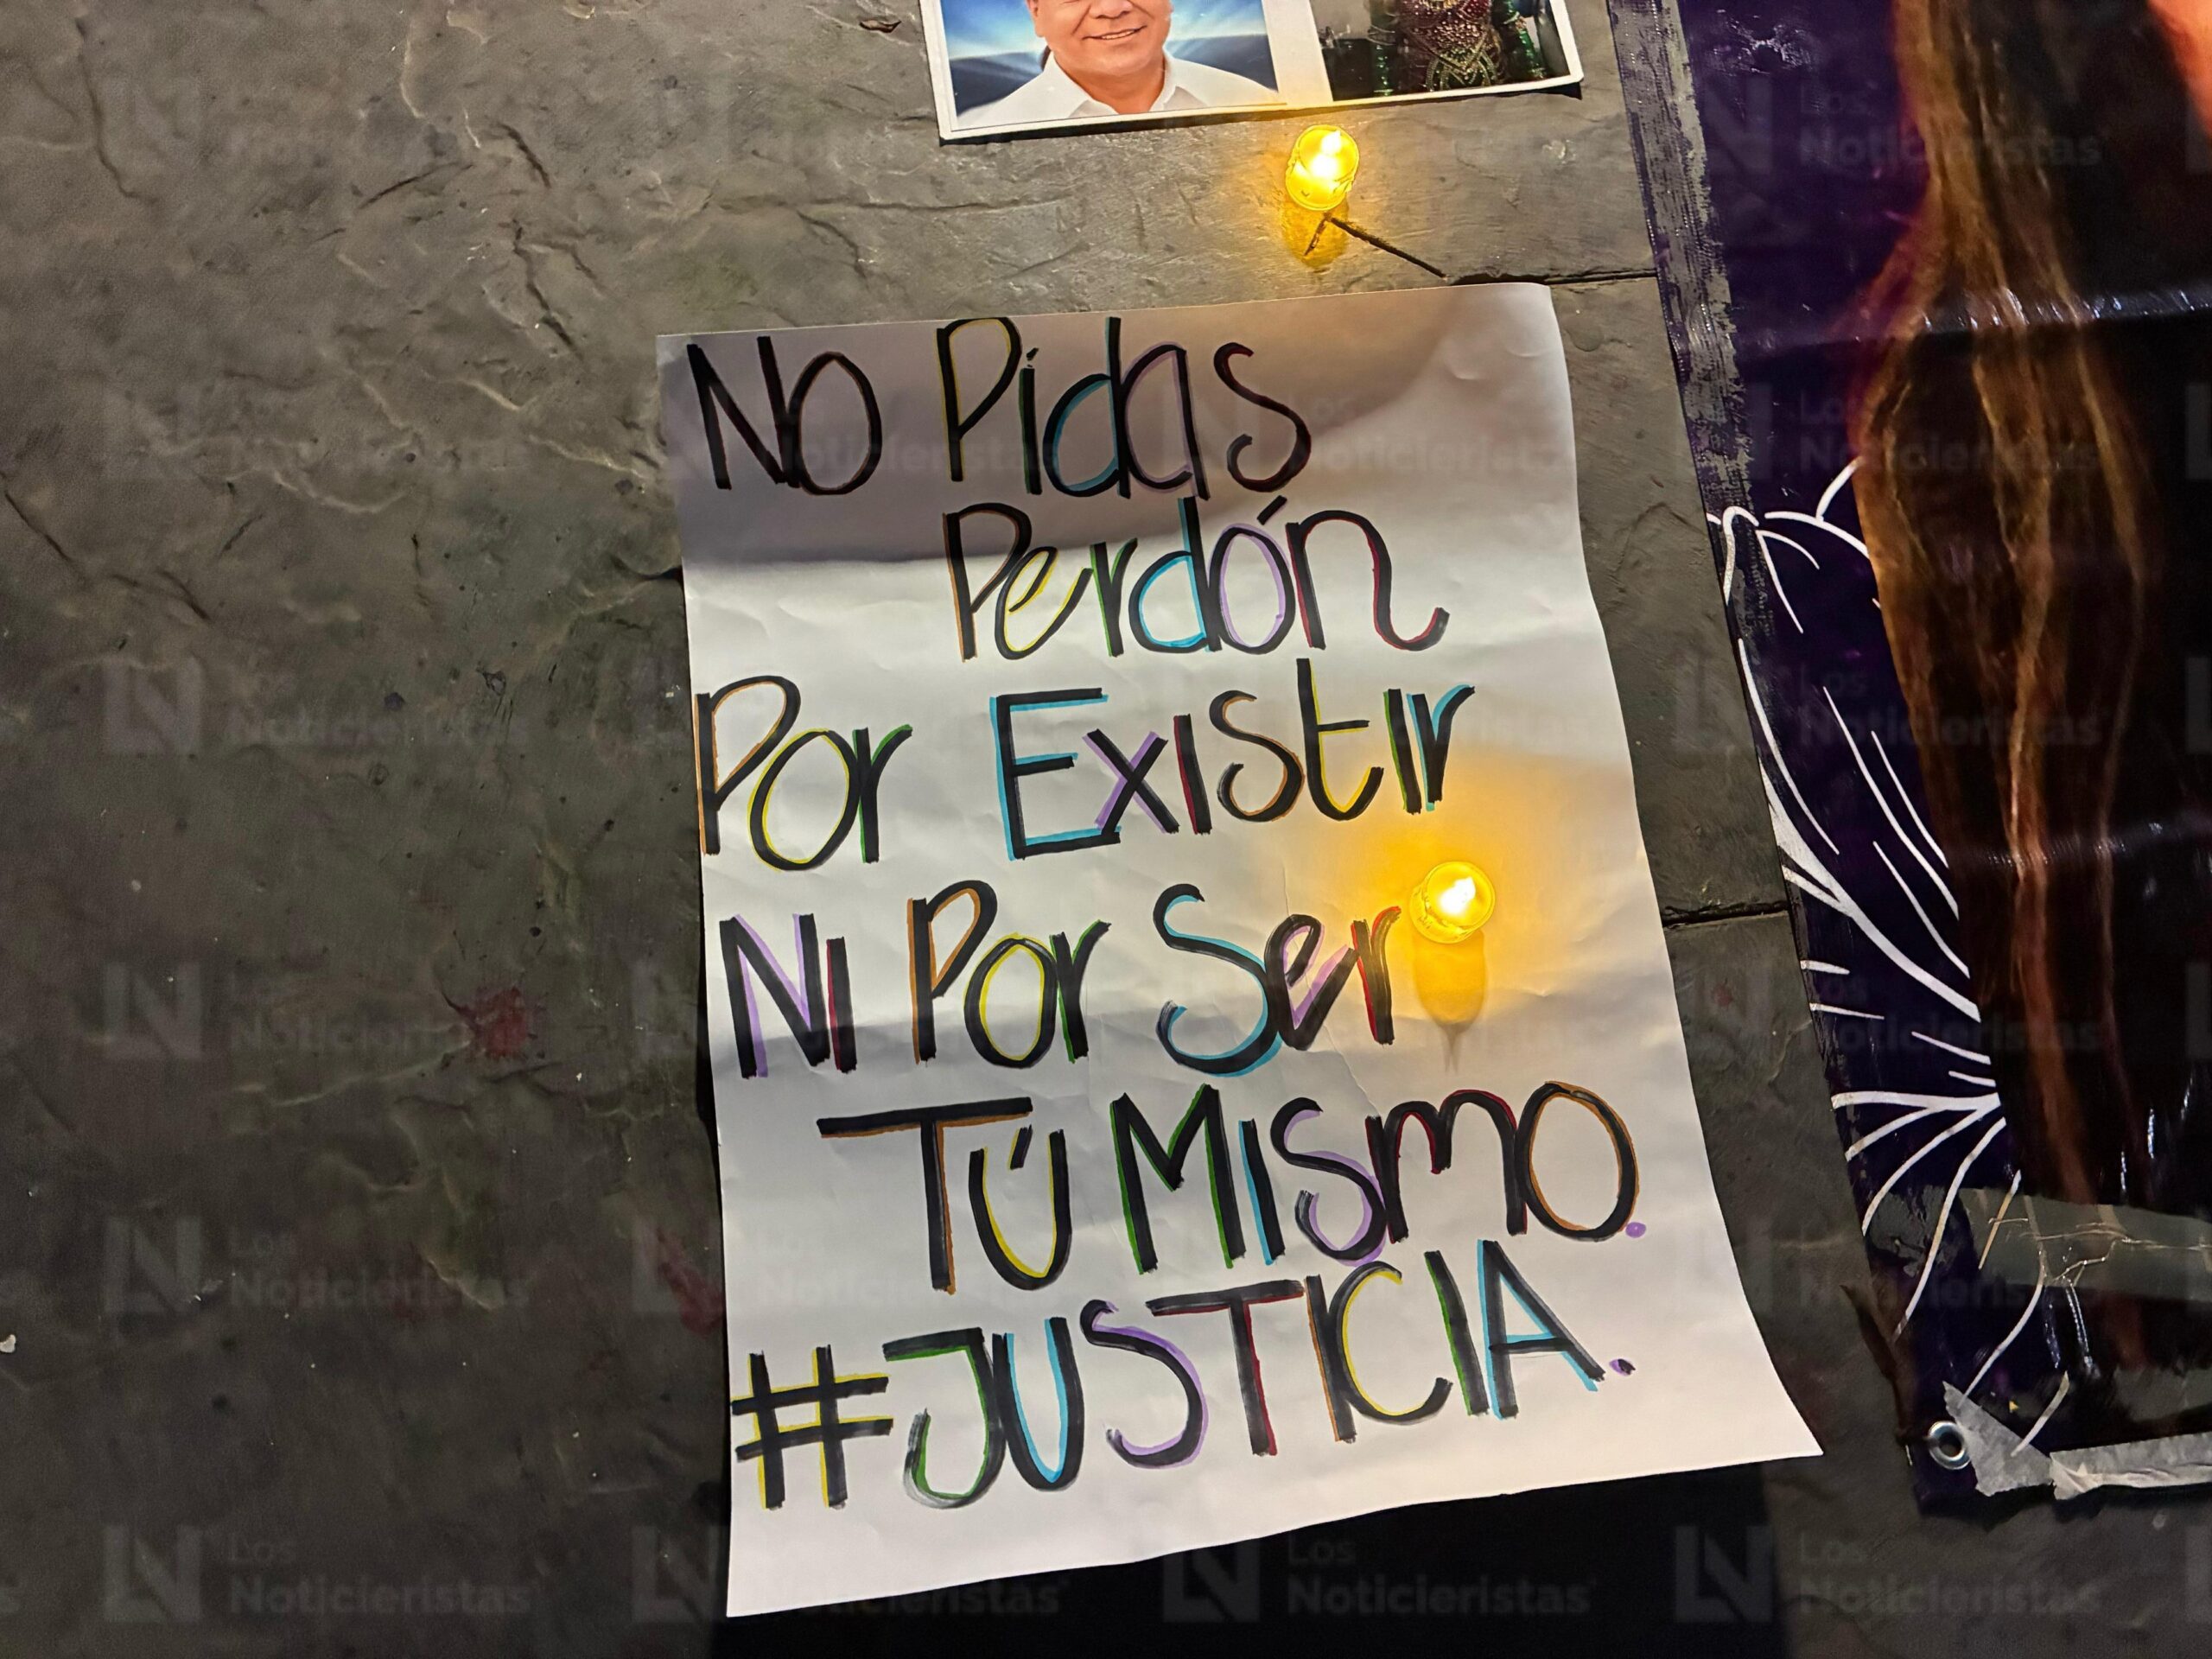 No Pidas
Perdón
Por Existir
Ni Por Ser
Tú Mismo.
#JUSTICIA.
Los
Noticieristas